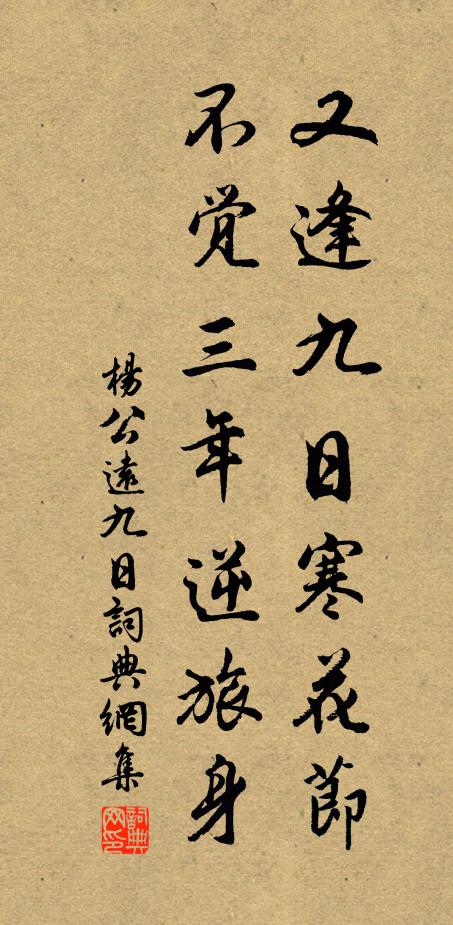 又逢九日寒花節
不覺三年逆旅身
楊公遠九日詞典網集
詞典網印